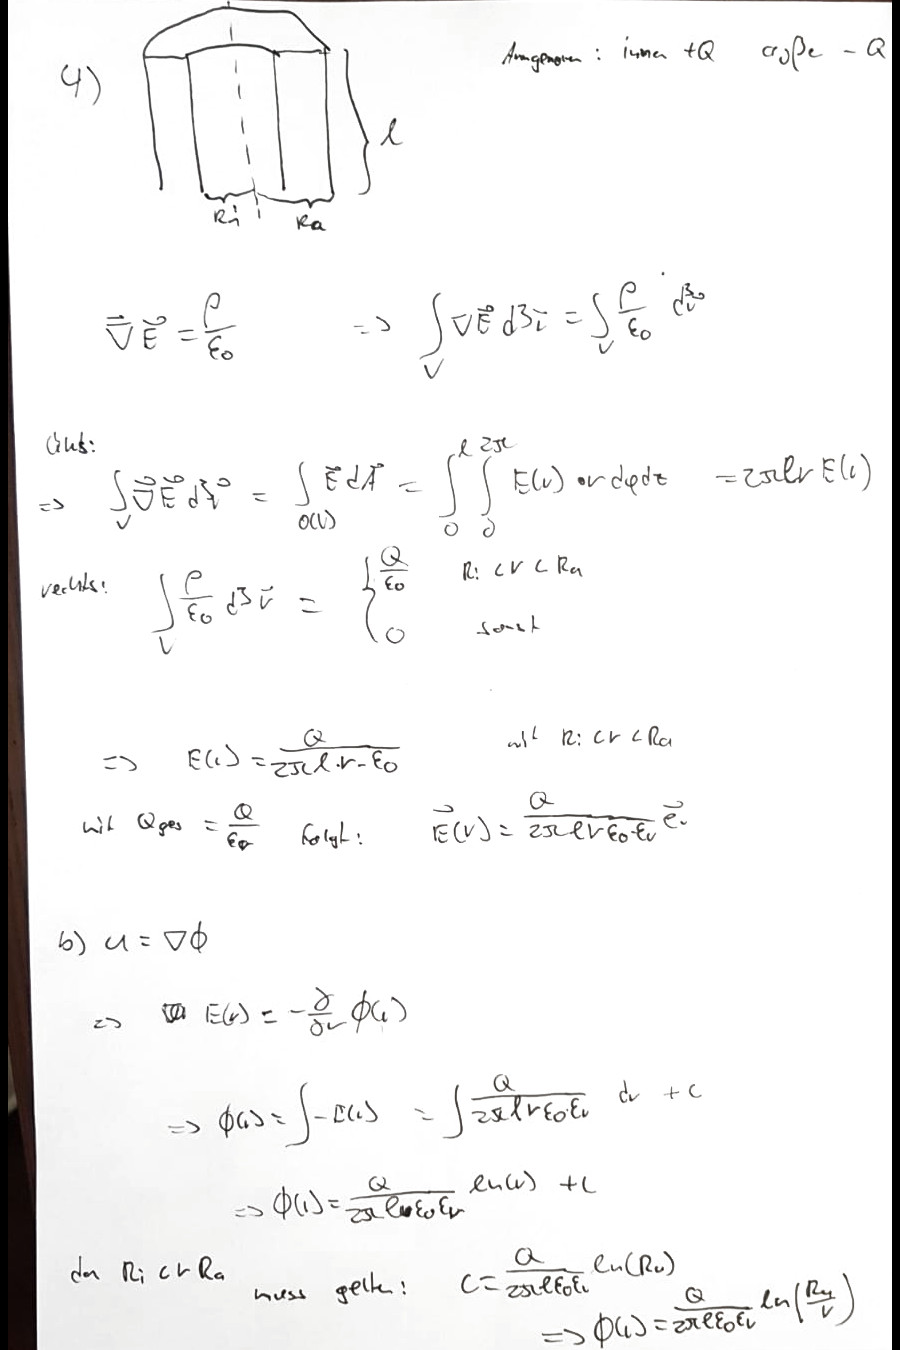 4)
Angenommen: innen +Q außen -Q
l
Ri Ra
∇⃗ E⃗ = ρ/ε₀ => ∫_V ∇E⃗ d³r⃗ = ∫_V ρ/ε₀ d³r
links:
=> ∫_V ∇⃗ E⃗ d³r = ∫_O(V) E⃗ dA⃗ = ∫_0^l ∫_0^2π E(r) · r dφ dz = 2π l r E(r)
rechts: ∫_V ρ/ε₀ d³r⃗ = { Q/ε₀ Ri < r < Ra
0 sonst
=> E(r) = Q/(2π l · r · ε₀) mit Ri < r < Ra
mit Qges = Q/εr folgt: E⃗(r) = Q/(2π l r ε₀ · εr) e⃗r
b) U = ∇ϕ
=> E(r) = -∂/∂r ϕ(r)
=> ϕ(r) = ∫ -E(r) = ∫ Q/(2π l r ε₀ · εr) dr + C
=> ϕ(r) = Q/(2π l ε₀ εr) ln(r) + C
da Ri < r Ra muss gelten: C = Q/(2π l ε₀ εr) ln(Ra)
=> ϕ(r) = Q/(2π l ε₀ εr) ln(Ra/r)